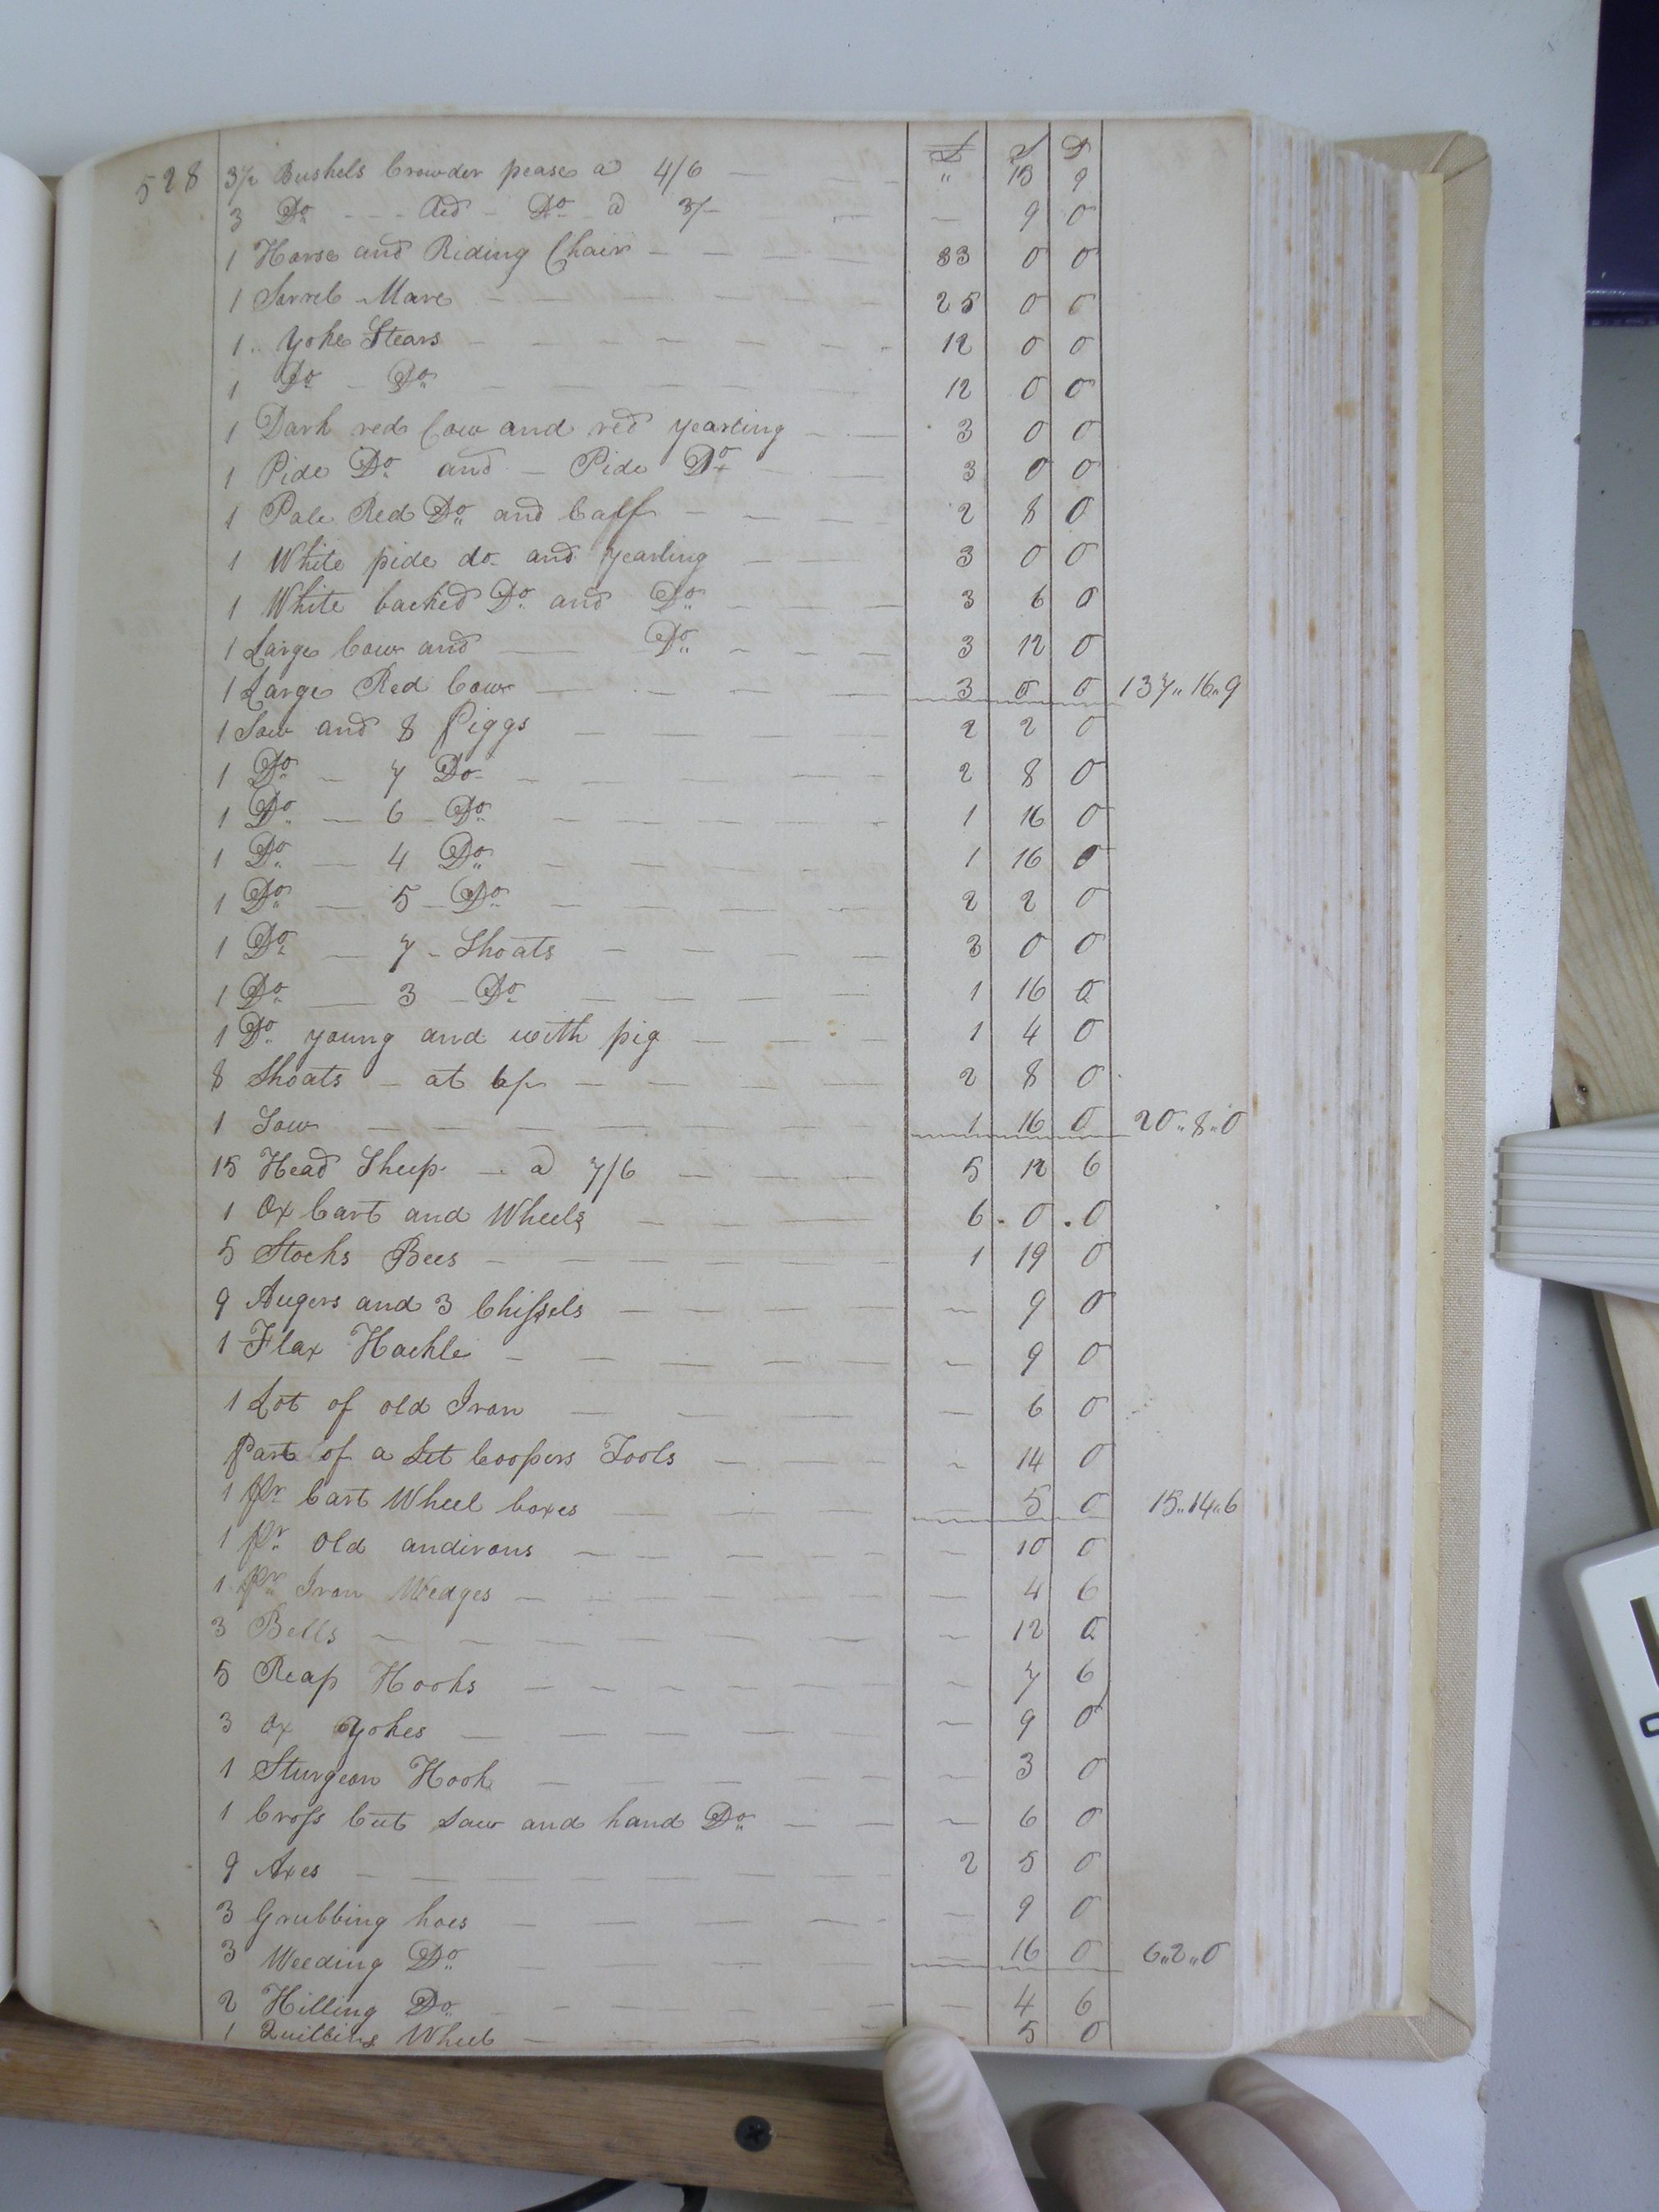 £ S D
528 3½ Bushels Crowder pease a 4/6 " 15 9
3 Do Red Do a 3/ 9 0
1 Horse and Riding Chair 33 0 0
1 Sorrel Mare 25 0 0
1 Yoke Stears 12 0 0
1 Do Do 12 0 0
1 Dark red Cow and red yearling 3 0 0
1 Pide Do and Pide Do 3 0 0
1 Pale Red Do and Calf 2 8 0
1 White pide do and yearling 3 0 0
1 White backed Do and Do 3 6 0
1 Large Cow and Do 3 12 0
1 Large Red Cow 3 0 0 137"16"9
1 Sow and 8 Piggs 2 2 0
1 Do 7 Do 2 8 0
1 Do 6 Do 1 16 0
1 Do 4 Do 1 16 0
1 Do 5 Do 2 2 0
1 Do 7 Shoats 3 0 0
1 Do 3 Do 1 16 0
1 Do young and with pig 1 4 0
8 Shoats at 6/ 2 8 0
1 Sow 1 16 0 20"8"0
15 Head Sheep a 7/6 5 12 6
1 Ox Cart and Wheels 6 . 0 . 0
5 Stocks Bees 1 19 0
9 Augers and 3 Chissels 9 0
1 Flax Hackle 9 0
1 Lot of old Iron 6 0
Part of a Set Coopers Tools 14 0
1 Pr Cart Wheel boxes 5 0 15"14"6
1 Pr Old andirons 10 0
1 Pr Iron Wedges 4 6
3 Bells 12 0
5 Reap Hooks 7 6
3 Ox Yokes 9 0
1 Sturgeon Hook 3 0
1 Cross Cut Saw and hand Do 6 0
9 Axes 2 5 0
3 Grubbing hoes 9 0
3 Weeding Do 16 0 6"2"0
2 Hilling Do 4 6
1 Quilling Wheel 5 0